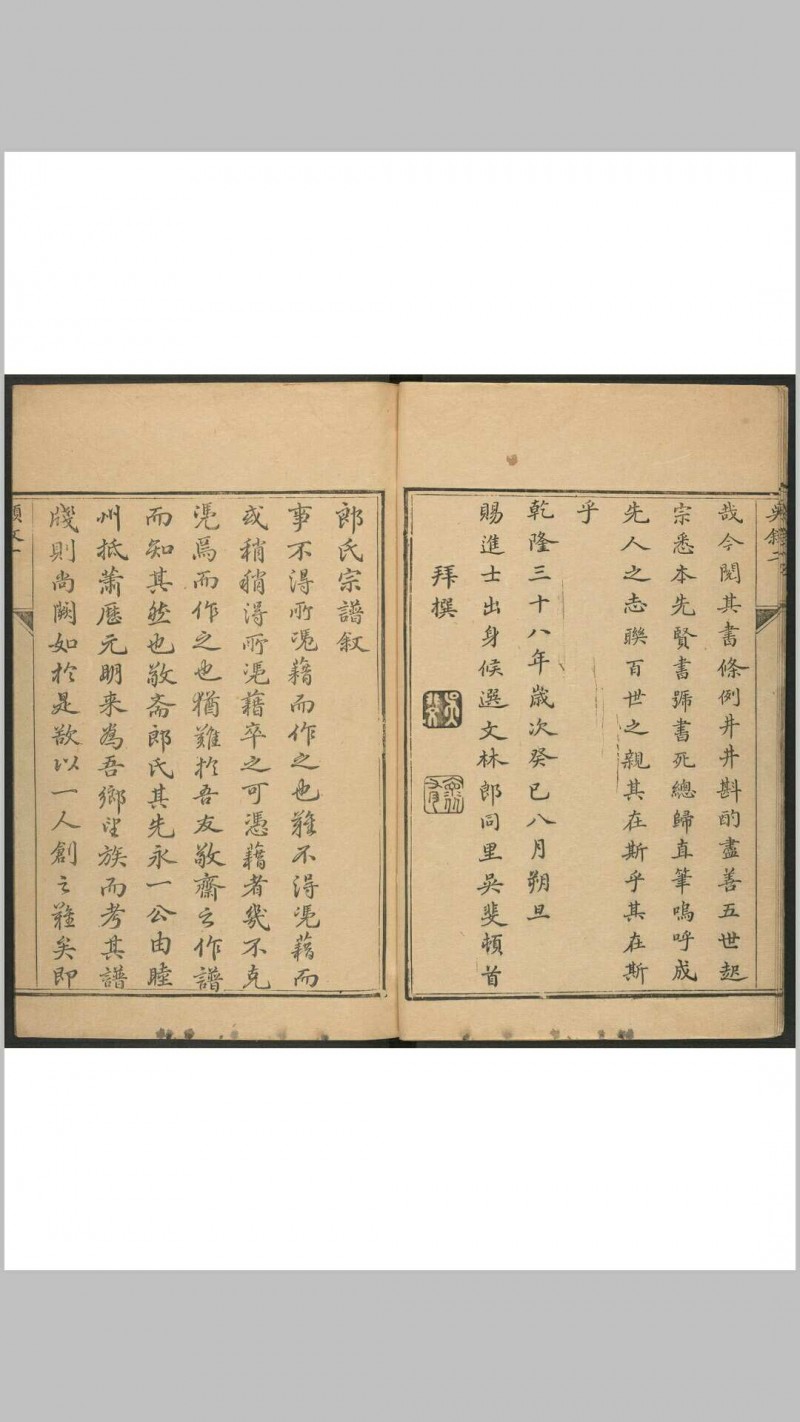 哉今閱其書條例井井斟酌盡善五世起
宗悉本先賢書號書死總歸直筆嗚呼成
先人之志聯百世之親其在斯乎其在斯
乎
乾隆三十八年歲次癸巳八月朔旦
賜進士出身候選文林郎同里吳斐頓首
拜撰
吳斐
郎氏宗譜叙
事不得所凴藉而作之也難不得凴藉而
或稍稍得所凴藉卒之可憑藉者幾不克
凴焉而作之也猶難於吾友敬齋之作譜
而知其然也敬斋郎氏其先永一公由睦
州抵蕭歷元明来為吾鄉望族而考其譜
牋則尚闕如於是欲以一人創之難矣即